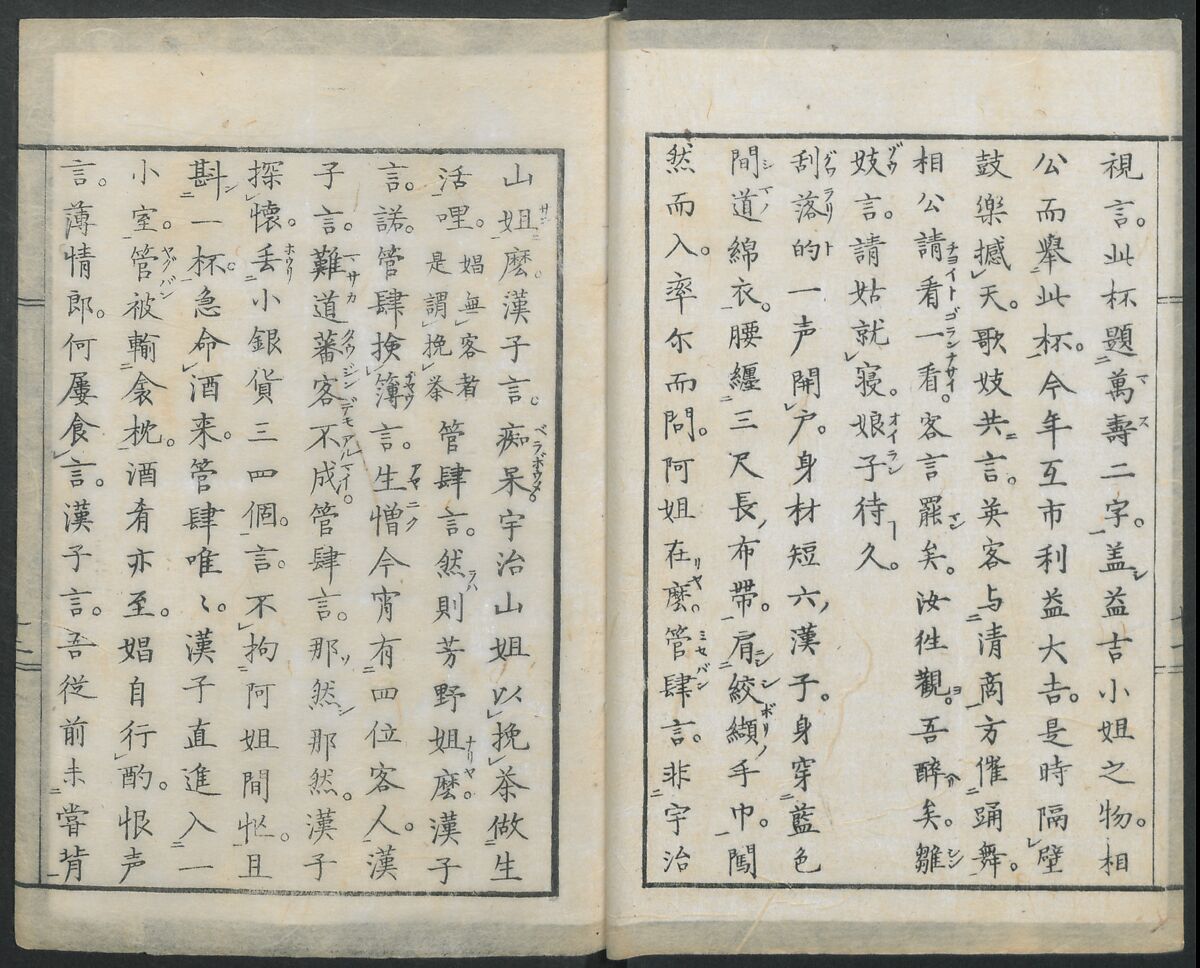 視言。此杯題萬壽二字。盖益吉小姐之物。相
公而舉此杯。今年互市利益大吉。是時隔壁
鼓樂撼天。歌妓共言。英客与清商方催踊舞。
相公請看一看。客言罷矣。汝徃觀。吾醉矣。雛
妓言。請姑就寢。娘子待久。
刮落的一声開戸。身材短六漢子。身穿藍色
間道綿衣。腰纏三尺長布帶。肩絞纈手巾。闖
然而入。率尓而問。阿姐在麼。管肆言。非宇治
山姐麼。漢子言。痴呆宇治山姐以挽茶做生
活哩。娼無客者是謂挽茶管肆言。然則芳野姐麼。漢子
言。諾。管肆検簿言。生憎今宵有四位客人。漢
子言。難道蕃客不成。管肆言。那然那然。漢子
探懷。丢小銀貨三四個。言。不拘阿姐間忙。且
斟一杯。急命酒来。管肆唯〻。漢子直進入一
小室。管被輸衾枕。酒肴亦至。娼自行酌。恨声
言。薄情郎。何屢食言。漢子言。吾従前未嘗背